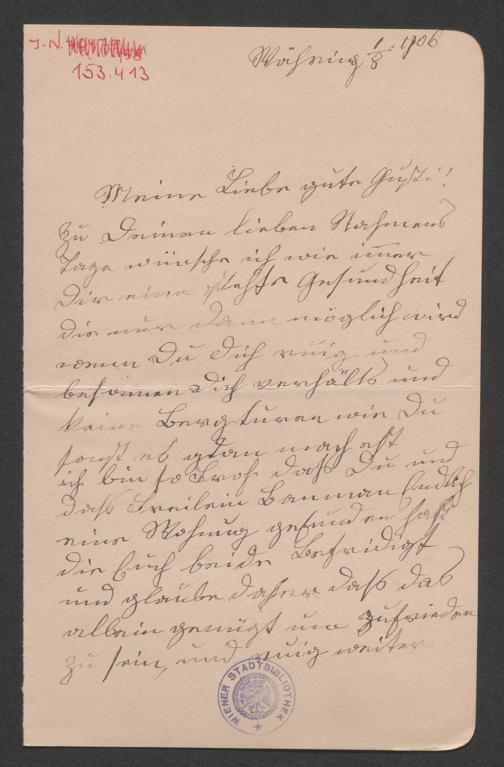 J. N.
153.413
Währing 1/8 1906
Meine Liebe gute Gusti!
Zu Deinen lieben Nahmens
Tage wünsche ich wie imer
Dir eine stehte Gesundheit
die nur dann möglich wird
wenn Du Dich ruig und
besonnen Dich verhälts und
keine Bergturen wie Du
sonst es machest
ich bin so Froh dass Du und
dass Freilein Bauman Endlich
eine Wohnung gefunden hast
die Euch beide Befridigt
und glaube daher dass das
allein genügt um zufrieden
zu sein, und ruig weiter
WIENER STADTBIBLIOTHEK